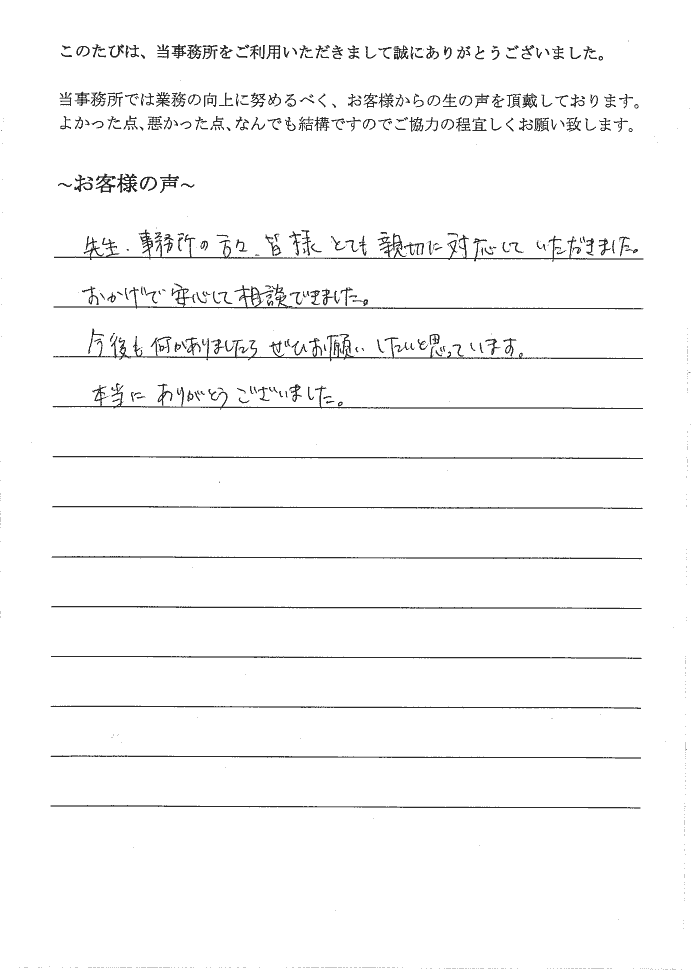 このたびは、当事務所をご利用いただきまして誠にありがとうございました。
当事務所では業務の向上に努めるべく、お客様からの生の声を頂戴しております。
よかった点、悪かった点、なんでも結構ですのでご協力の程宜しくお願い致します。
~お客様の声~
先生、事務所の方々、皆様とても親切に対応していただきました。
おかげで安心して相談できました。
今後も何かありましたらぜひお願いしたいと思っています。
本当にありがとうございました。